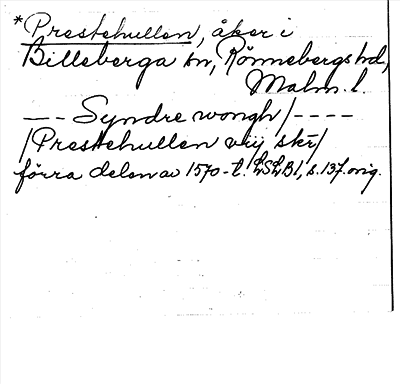 *Prestehullen, åker i
Billeberga sn, Rönnebergs hd,
Malm. l.
– – – Syndre wongh/ – – – –
/Prestehullen viij skr/
förra delen av 1570-t. LSLB1, s. 137. orig.